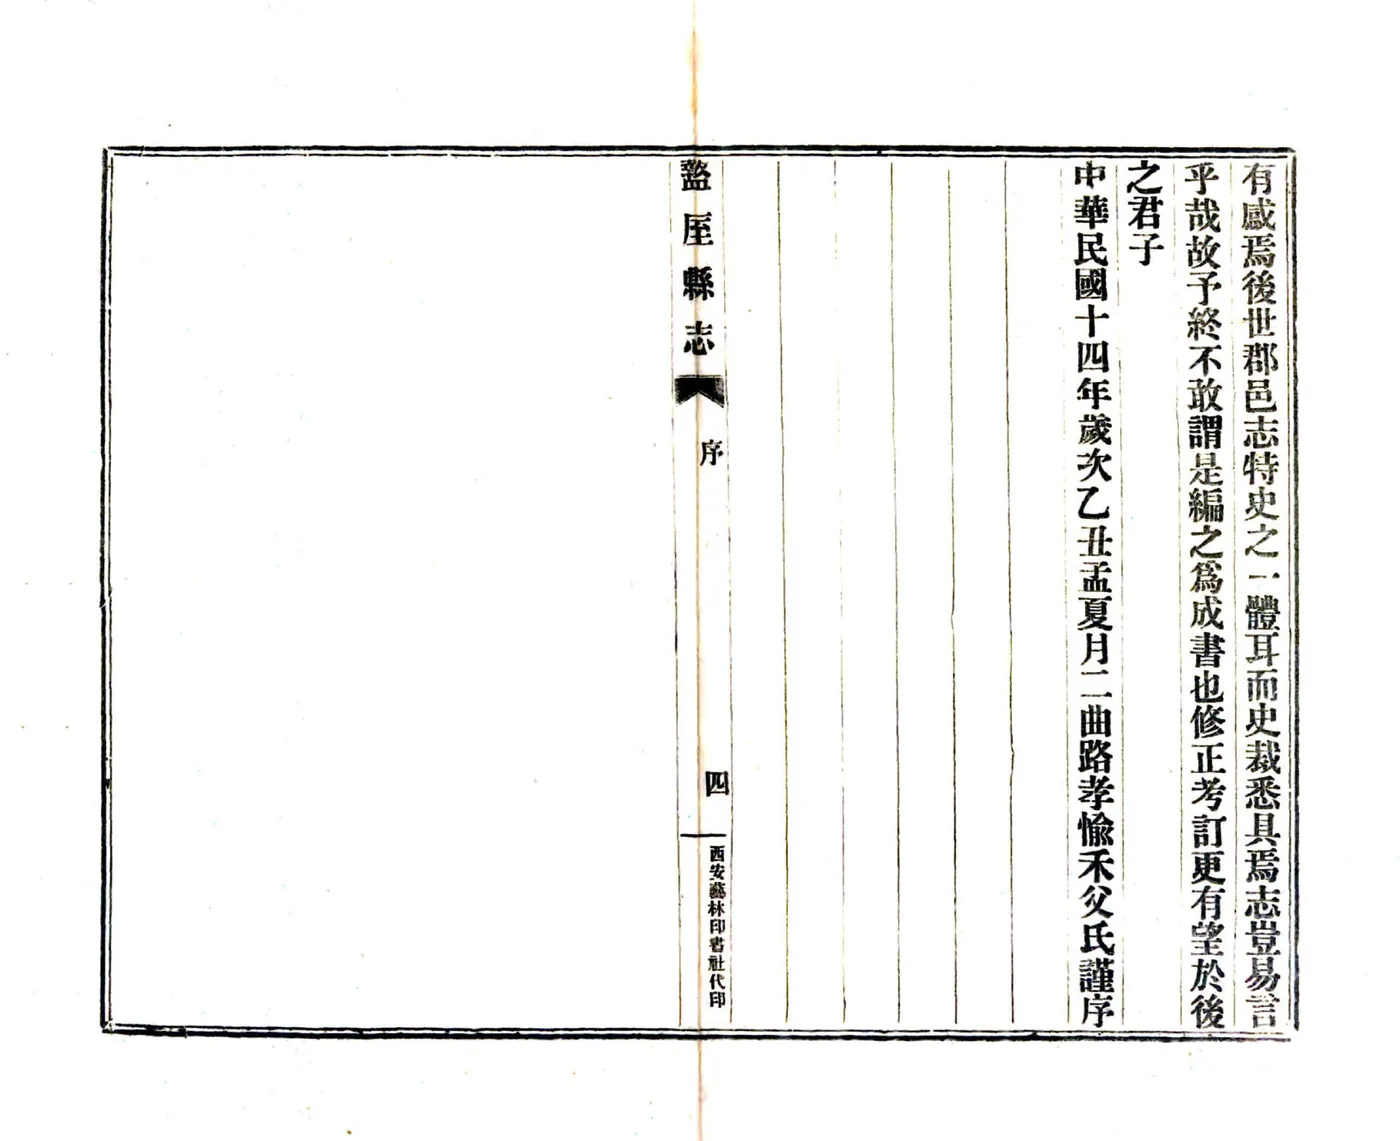 有感焉後世郡邑志特史之一體耳而史裁悉具焉志豈易言
乎哉故予終不敢謂是編之爲成書也修正考訂更有望於後
之君子
中華民國十四年歲次乙丑孟夏月二曲路孝愉禾父氏謹序
盩厔縣志
序
四
西安藝林印書社代印